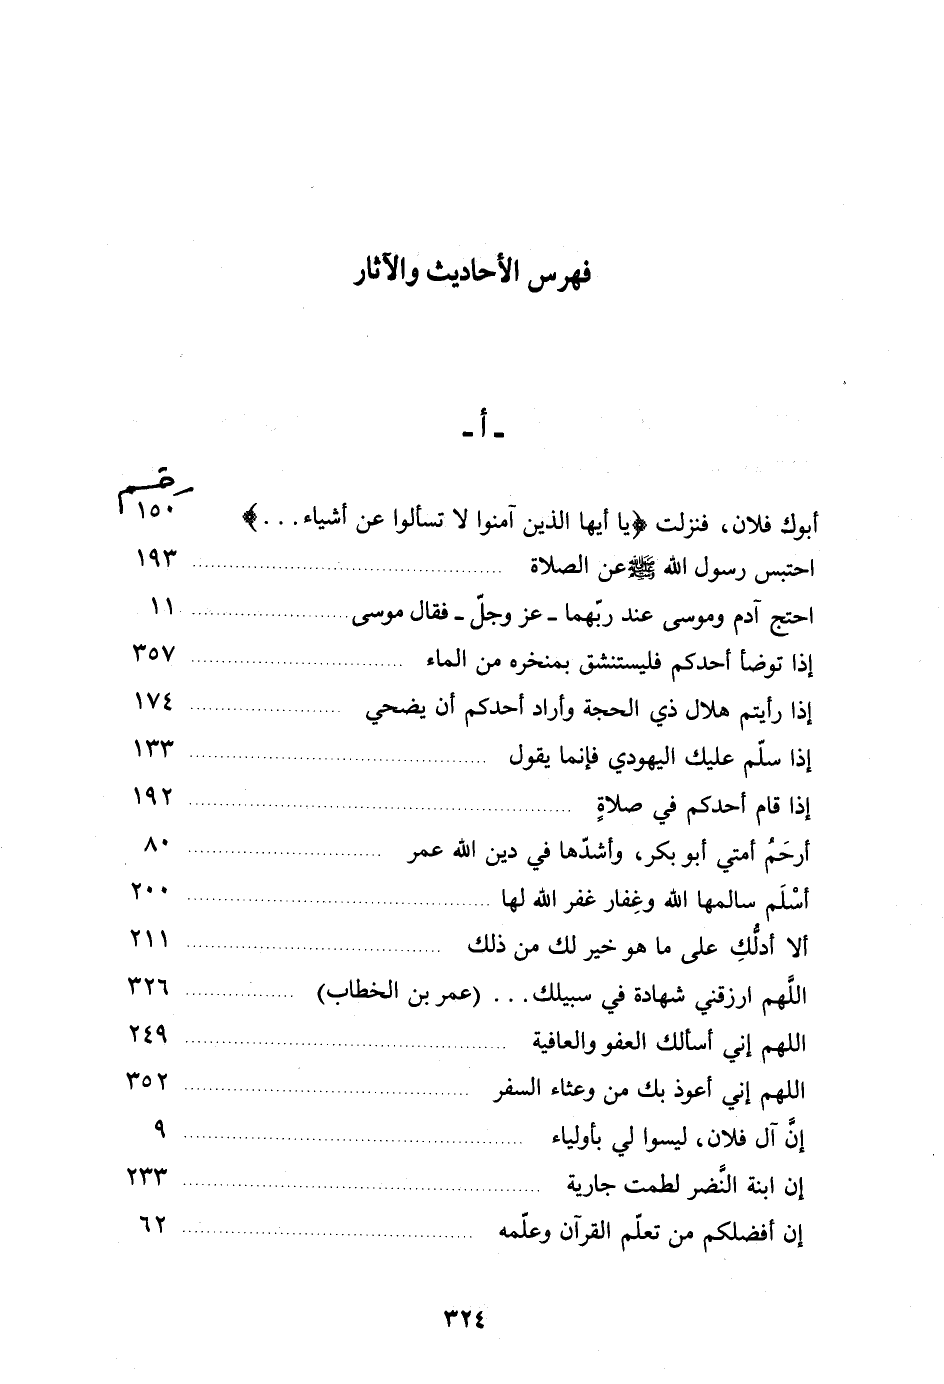 فهرس الأحاديث والآثار
ـ أ ـ
رقم
أبوك فلان، فنزلت ﴿يا أيها الذين آمنوا لا تسألوا عن أشياء...﴾ ١٥٠
احتبس رسول الله ﷺ عن الصلاة ........ ١٩٣
احتج آدم وموسى عند ربّهما ـ عز وجلّ ـ فقال موسى ........ ١١
إذا توضأ أحدكم فليستنشق بمنخره من الماء ........ ٣٥٧
إذا رأيتم هلال ذي الحجة وأراد أحدكم أن يضحي ........ ١٧٤
إذا سلّم عليك اليهودي فإنما يقول ........ ١٣٣
إذا قام أحدكم في صلاةٍ ........ ١٩٢
أرحَمُ أمتي أبو بكر، وأشدّها في دين الله عمر ........ ٨٠
أسْلَم سالمها الله وغِفار غفر الله لها ........ ٢٠٠
ألا أدلُّكِ على ما هو خير لك من ذلك ........ ٢١١
اللَّهم ارزقني شهادة في سبيلك... (عمر بن الخطاب) ........ ٣٢٦
اللهم إني أسألك العفو والعافية ........ ٢٤٩
اللهم إني أعوذ بك من وعثاء السفر ........ ٣٥٢
إنَّ آل فلان، ليسوا لي بأولياء ........ ٩
إن ابنة النَّضر لطمت جارية ........ ٢٣٣
إن أفضلكم من تعلّم القرآن وعلّمه ........ ٦٢
٣٢٤